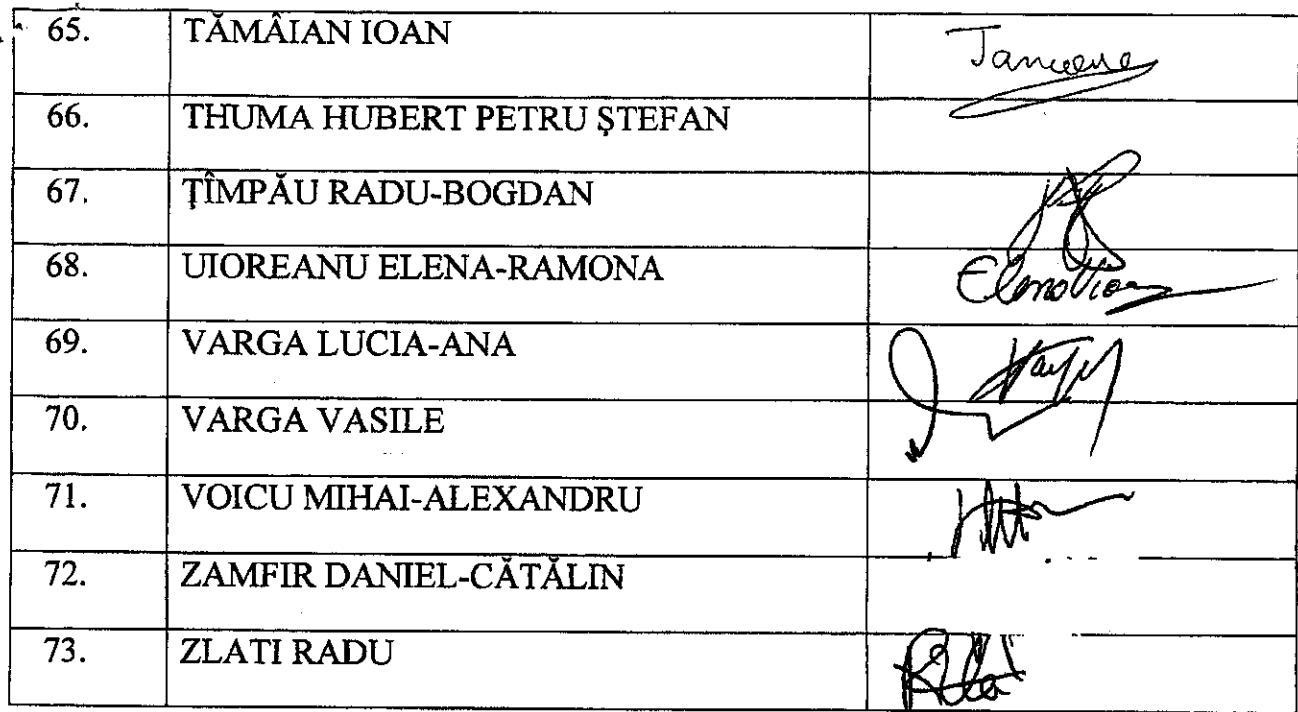 65. TĂMÂIAN IOAN
66. THUMA HUBERT PETRU ȘTEFAN
67. ȚÎMPĂU RADU-BOGDAN
68. UIOREANU ELENA-RAMONA
69. VARGA LUCIA-ANA
70. VARGA VASILE
71. VOICU MIHAI-ALEXANDRU
72. ZAMFIR DANIEL-CĂTĂLIN
73. ZLATI RADU